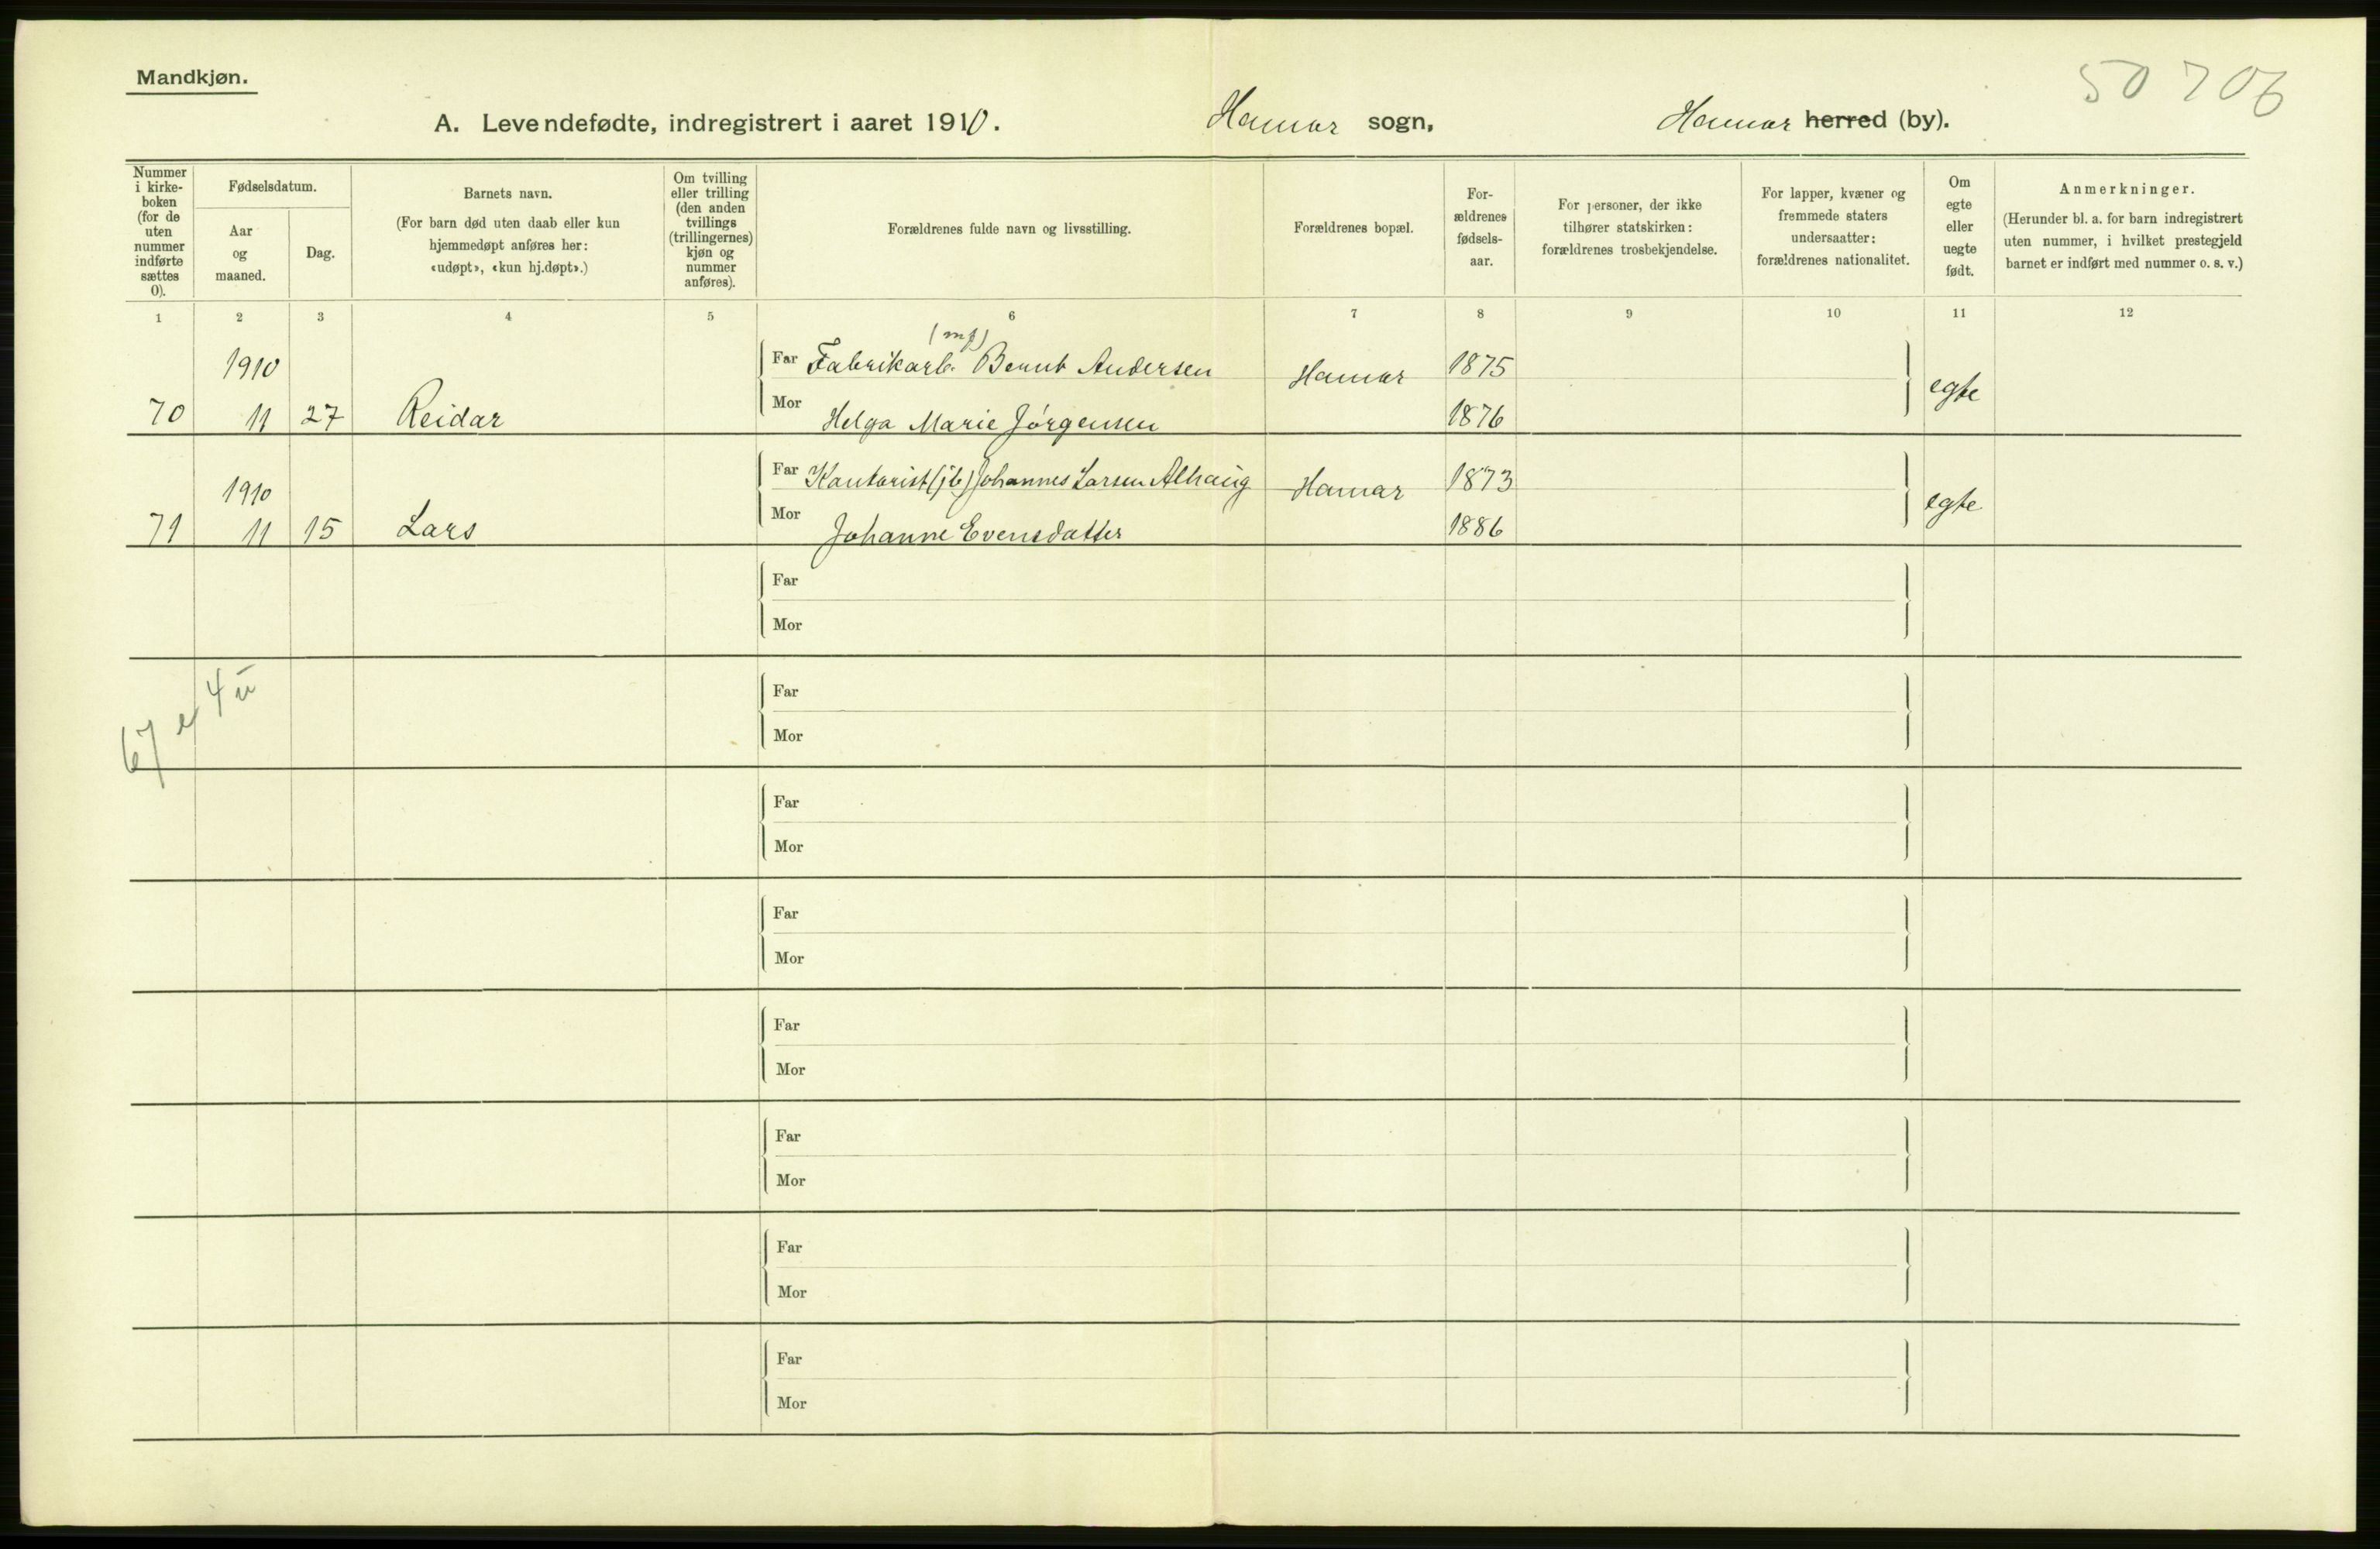 Mandkjøn.
50 706
A. Levendefødte, indregistrert i aaret 1910. Hamar sogn, Hamar herred (by).
Nummer i kirke-boken (for de uten nummer indførte sættes 0).
Fødselsdatum.
Aar og maaned.
Dag.
Barnets navn.
(For barn død uten daab eller kun hjemmedøpt anføres her: «udøpt», «kun hj.døpt».)
Om tvilling eller trilling (den anden tvillings (trillingernes) kjøn og nummer anføres).
Forældrenes fulde navn og livsstilling.
Forældrenes bopæl.
For-ældrenes fødsels-aar.
For personer, der ikke tilhører statskirken: forældrenes trosbekjendelse.
For lapper, kvæner og fremmede staters undersaatter: forældrenes nationalitet.
Om egte eller uegte født.
Anmerkninger.
(Herunder bl. a. for barn indregistrert uten nummer, i hvilket prestegjeld barnet er indført med nummer o. s. v.)
1 2 3 4 5 6 7 8 9 10 11 12
(mf)
1910 Far Fabrikarb. Bernt Andersen Hamar 1875 egte
70 11 27 Reidar Mor Helga Marie Jørgensen 1876
1910 Far Kontorist (jb) Johannes Larsen Alhaug Hamar 1873 egte
71 11 15 Lars Mor Johanne Evensdatter 1886
Far
Mor
67 e 4 u
Far
Mor
Far
Mor
Far
Mor
Far
Mor
Far
Mor
Far
Mor
Far
Mor